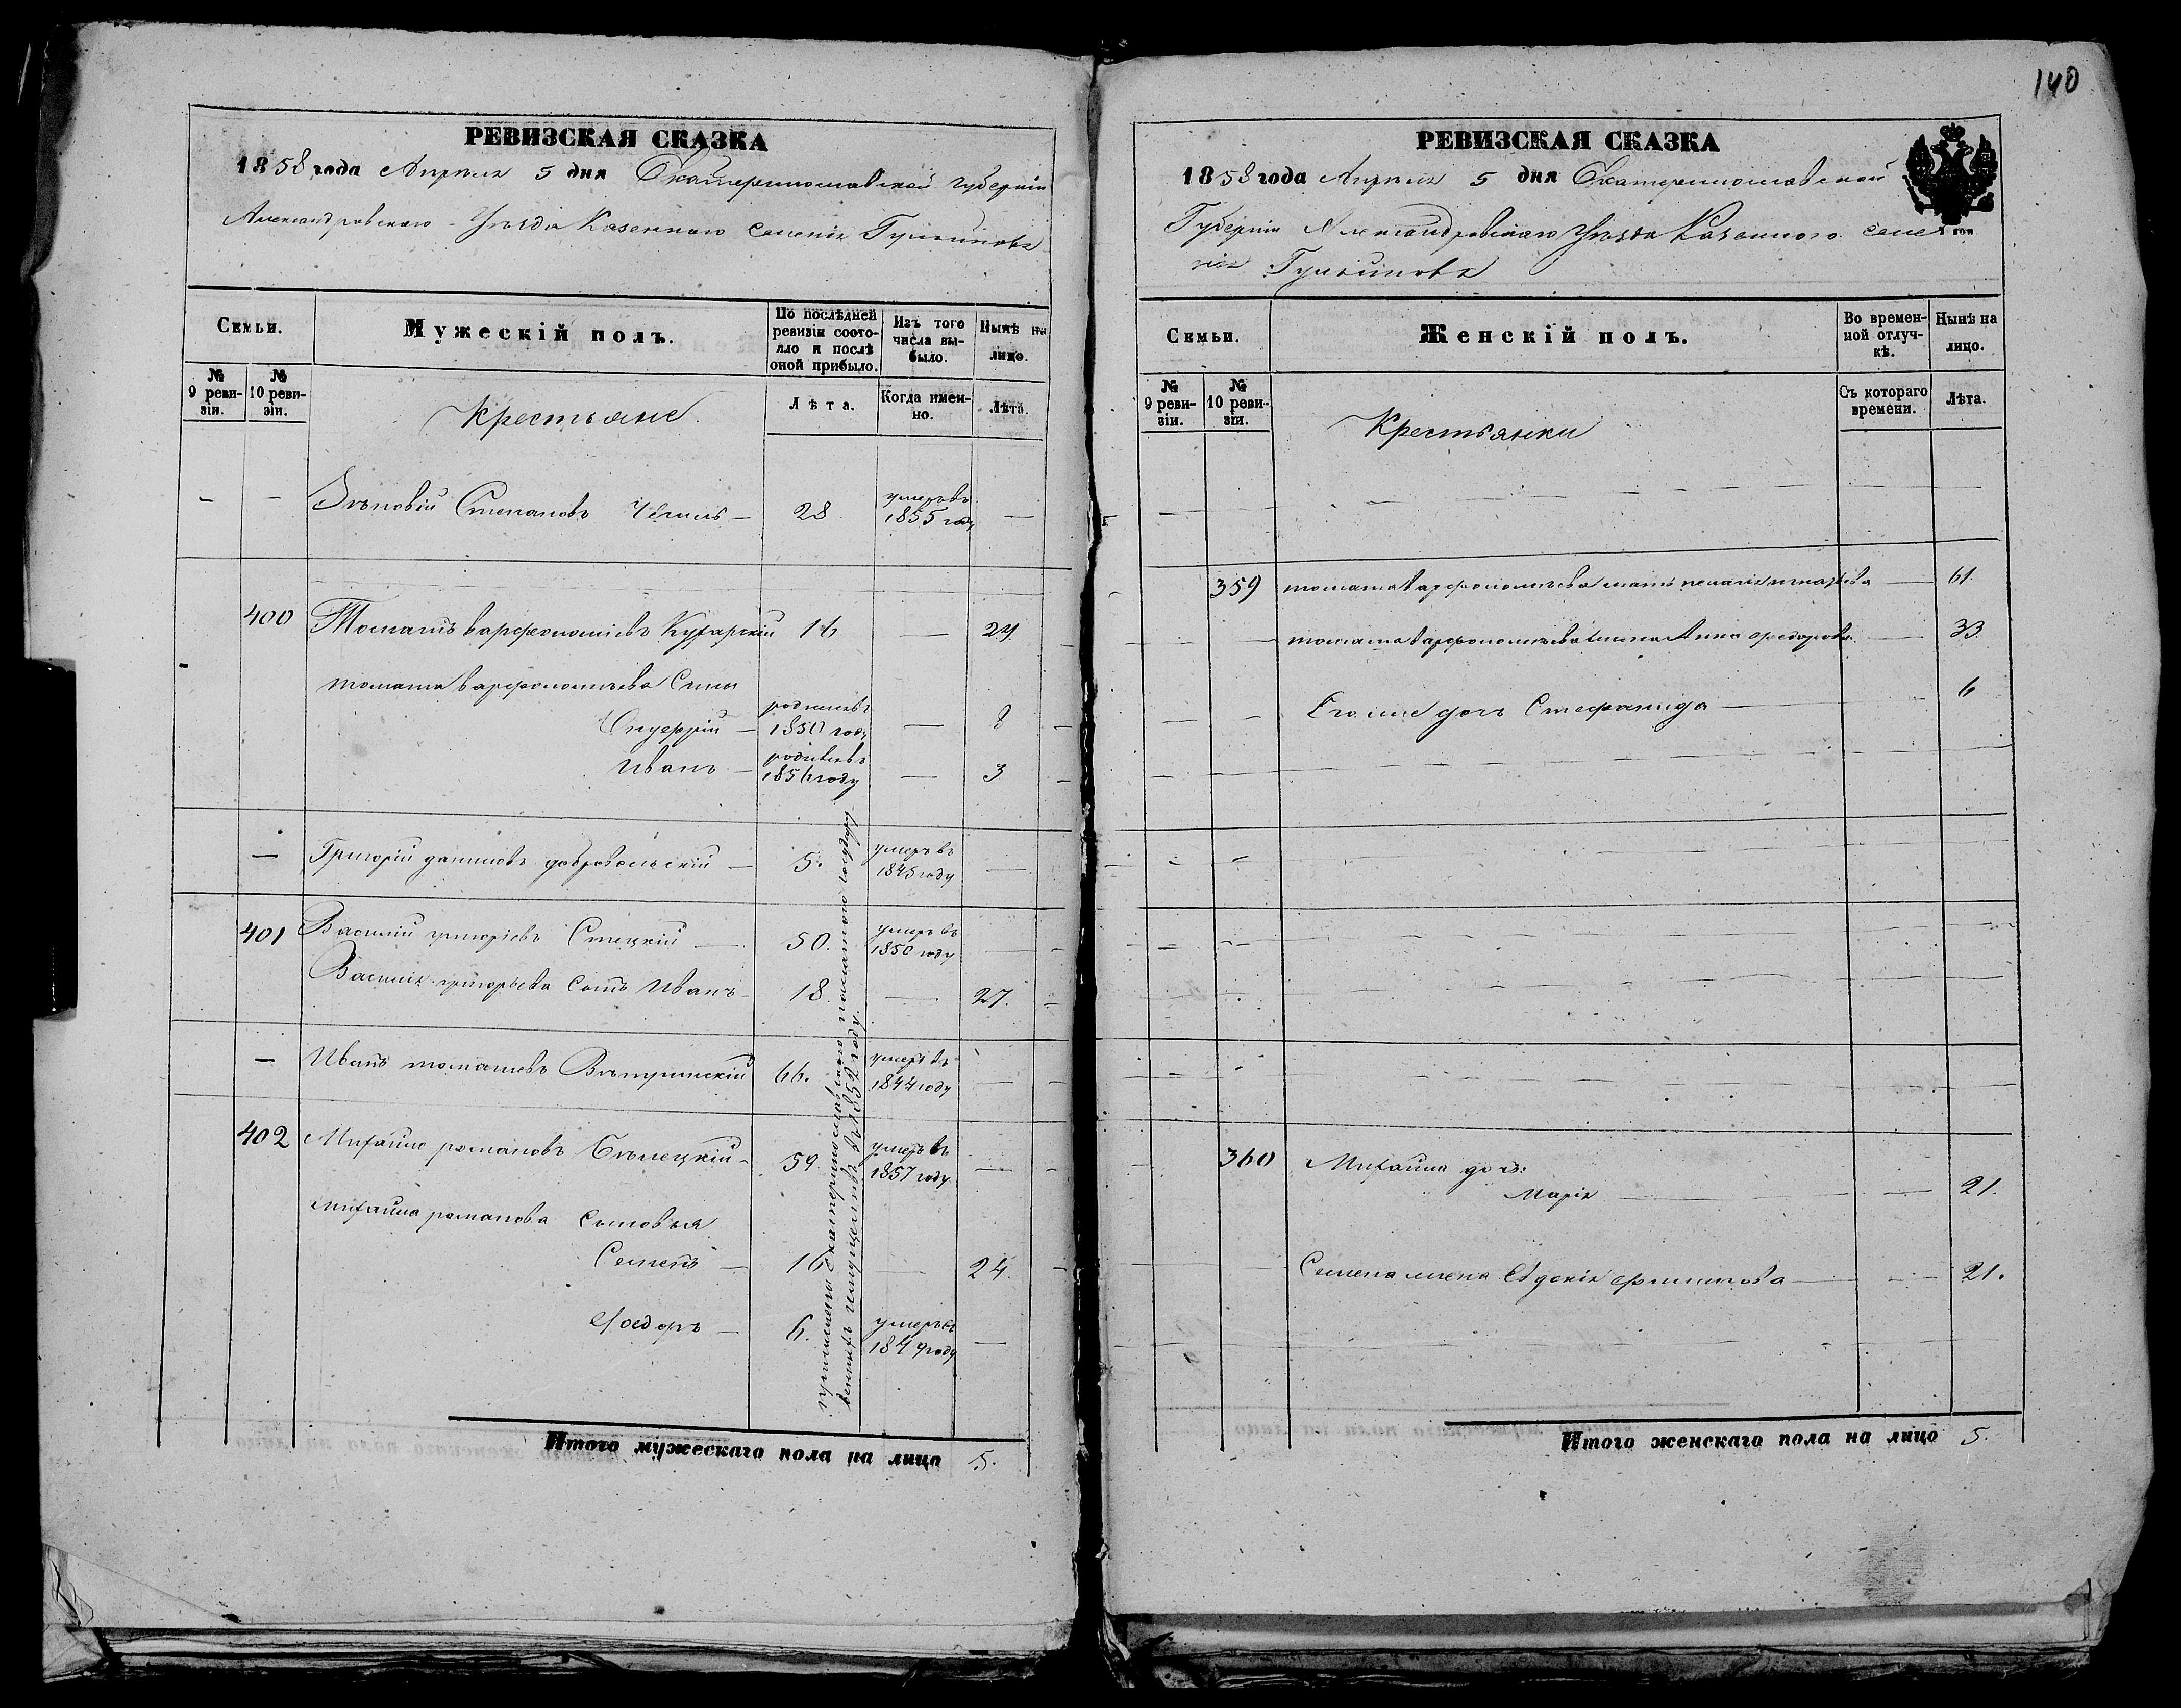 140
РЕВИЗСКАЯ СКАЗКА
1858 года Апрѣля 5 дня Екатеринославской губерніи
Александровскаго Уѣзда Казеннаго селенія
Семьи.
Мужескій полъ.
По послѣдней ревизіи состояло и послѣ оной прибыло.
Изъ того числа выбыло.
Нынѣ на лицо.
№ 9 ревизіи.
№ 10 ревизіи.
Крестьяне
Лѣта.
Когда именно.
Лѣта.
— — Степановъ — 28 умеръ въ 1855 году —
400 Томашъ варфоломѣевъ Кухарскій 16 —
томаша варфоломѣева Сыны
Онуфрій — родился въ 1850 году — 8
Иванъ — родился въ 1856 году — 3
— Григорій даниловъ добровольскій — 5. умеръ въ 1845 году —
401 Василій григоріевъ Стецкій — 50. умеръ въ 1850 году —
Василія григорьева сынъ Иванъ 18. — 27.
— Иванъ томашевъ 66. умеръ въ 1844 году —
402 Михайло романовъ Бѣлецкій — 59. умеръ въ 1857 году —
михайла романова сыновья
Семенъ — 16 — 24.
Ѳедоръ — 6. умеръ въ 1849 году —
причислены Екатеринославскою палатою государственныхъ имуществъ въ 1852 году.
Итого мужескаго пола на лицо 5.
РЕВИЗСКАЯ СКАЗКА
1858 года Апрѣля 5 дня Екатеринославской
Губерніи Александровскаго Уѣзда Казеннаго селе
нія
Семьи.
Женскій полъ.
Во временной отлучкѣ.
Нынѣ на лицо.
№ 9 ревизіи.
№ 10 ревизіи.
Крестьянки
Съ котораго времени.
Лѣта.
359 томаша варфоломѣева мать — 61.
томаша варфоломѣева жена Анна федорова — 33.
Его же дочь Стефанида — 6
360 Михайла дочь:
Марія — 21.
Семена жена Евдокія филипова — 21.
Итого женскаго пола на лицо 5.